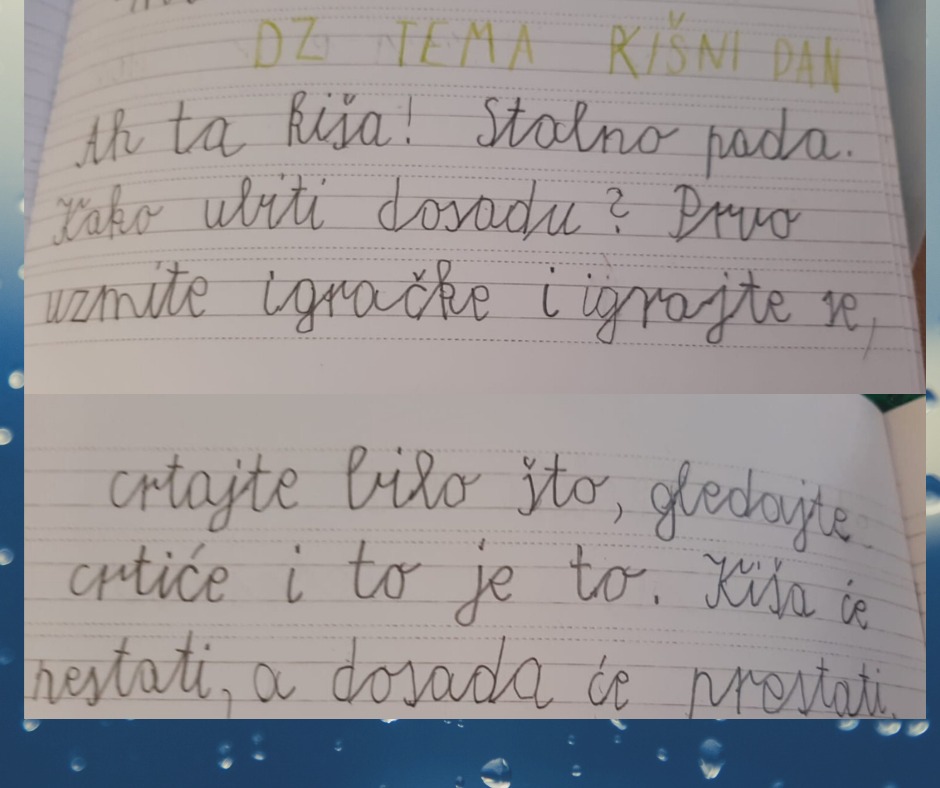 DZ TEMA KIŠNI DAN
Ah ta kiša! Stalno pada.
Kako ubiti dosadu? Prvo
uzmite igračke i igrajte se,
crtajte bilo što, gledajte
crtiće i to je to. Kiša će
nestati, a dosada će prestati.